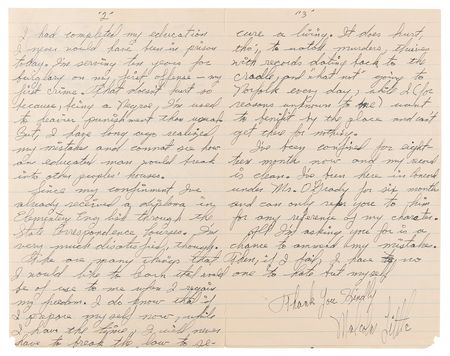 "2"
I had completed my education
I never would have been in prison
today. I'm serving ten years for
burglary on my first offense – my
first crime. That doesn't hurt so
because, being a Negroe, I'm used
to heavier punishment than usual.
But, I have long ago realized
my mistakes and cannot see how
an educated man would break
into other peoples' houses.
Since my confinement I've
already received a diploma in
Elementary English through the
State Correspondence Courses. I'm
very much dissatisfied, though.
There are many things that
I would like to learn that would
be of use to me when I regain
my freedom. I do know that if
I prepare myself now, while
I have the time, I will never
have to break the law to se-
"3"
cure a living. It does hurt,
tho', to watch murders, thieves
with records dating back to the
cradle, and what not going to
Norfolk every day; while I (for
reasons unknown to me) want
to benifit by the place and can't
get there for nothing.
I've been confined for eight-
teen month now and my record
is clean. I've been here in Concord
under Mr. O'Brady for six months
and can only refer you to him
for any reference of my character.
All I'm asking you for is a
chance to amend my mistakes.
Then, if I fail, I have no
one to hate but myself.
Thank You Kindly
Malcolm Little